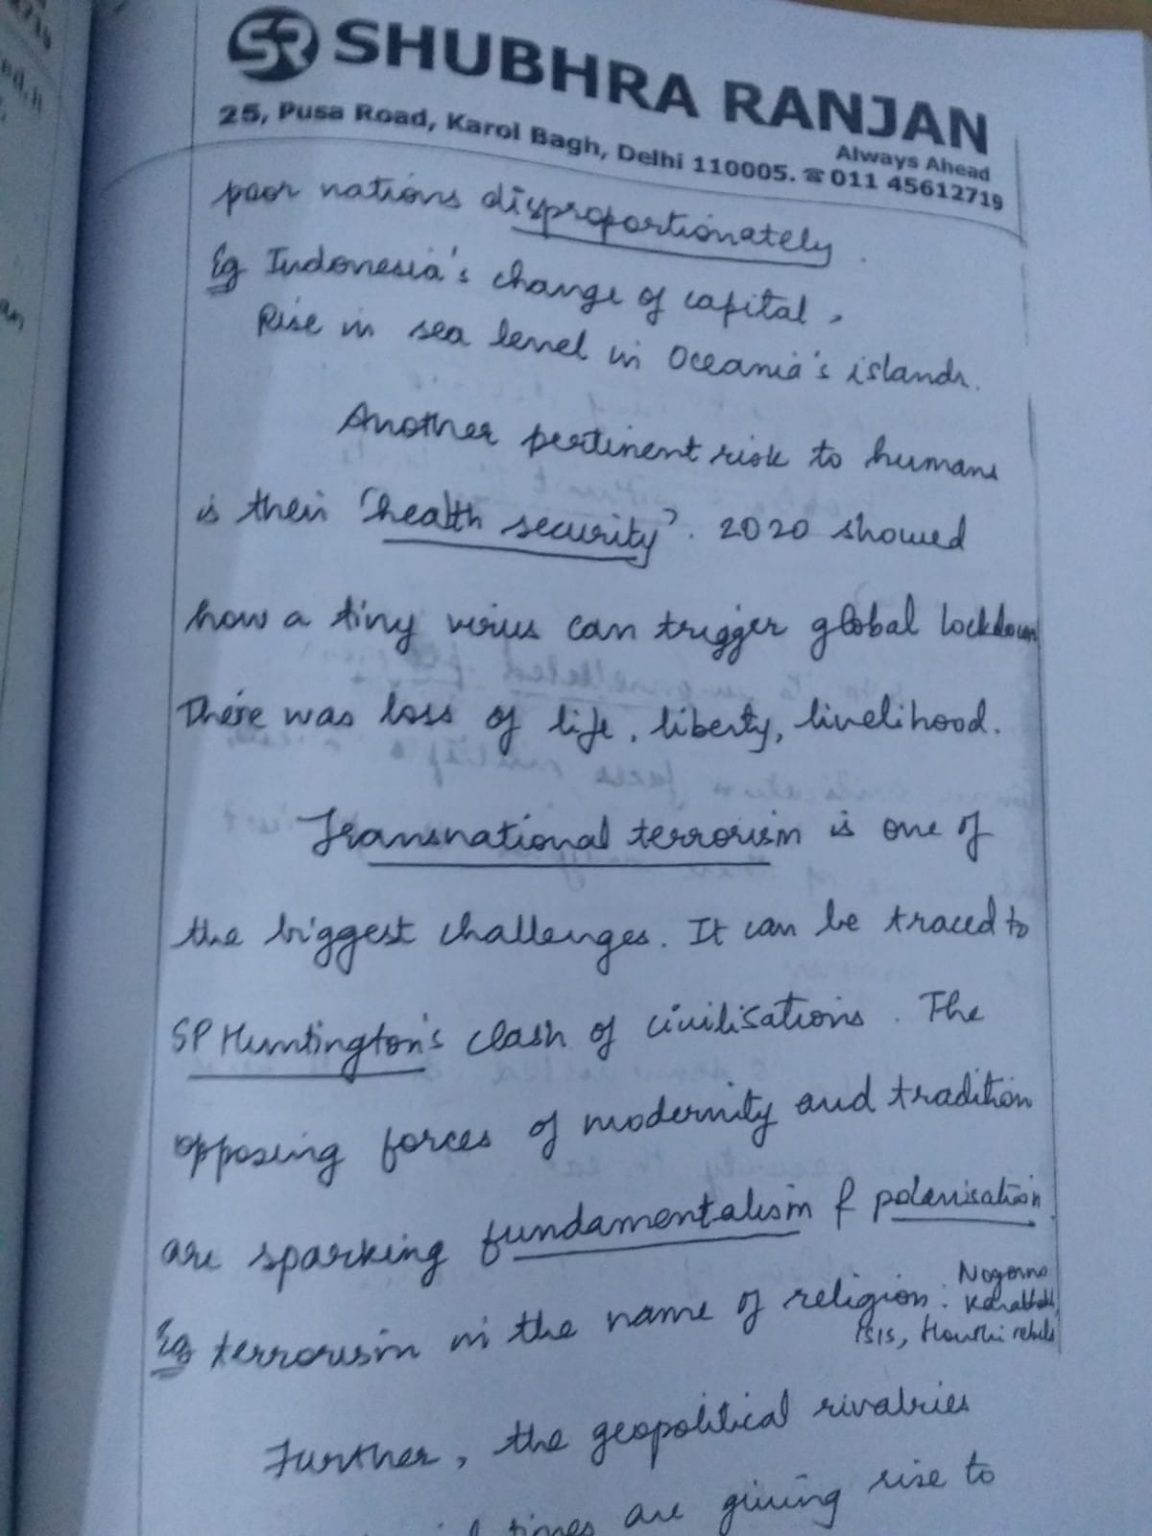 SR SHUBHRA RANJAN
Always Ahead
25, Pusa Road, Karol Bagh, Delhi 110005. ☎ 011 45612719
poor nations disproportionately.
Eg Indonesia's change of capital,
Rise in sea level in Oceania's islands.
Another pertinent risk to humans
is their 'health security'. 2020 showed
how a tiny virus can trigger global lockdown
There was loss of life, liberty, livelihood.
Transnational terrorism is one of
the biggest challenges. It can be traced to
SP Huntington's clash of civilisations. The
opposing forces of modernity and tradition
are sparking fundamentalism & polarisation.
Eg terrorism in the name of religion. Nagorno
Karabakh,
ISIS, Houthi rebels
Further, the geopolitical rivalries
times are giving rise to